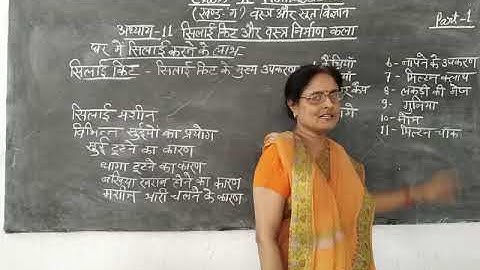 (खण्ड-ग) वस्त्र और सूत विज्ञान
Part-1
अध्याय-11 सिलाई किट और वस्त्र निर्माण कला
घर में सिलाई करने के लाभ
सिलाई किट - सिलाई किट के मुख्य उपकरण
6- नापने के उपकरण
7- मिल्टन क्लाथ
8- लकड़ी की मेज
9- गुनिया
10- पिन
11- मिल्टन चॉक
सिलाई मशीन
विभिन्न सुईयों का प्रयोग
सुई टूटने का कारण
धागा टूटने का कारण
बखिया खराब होने का कारण
मशीन भारी चलने के कारण